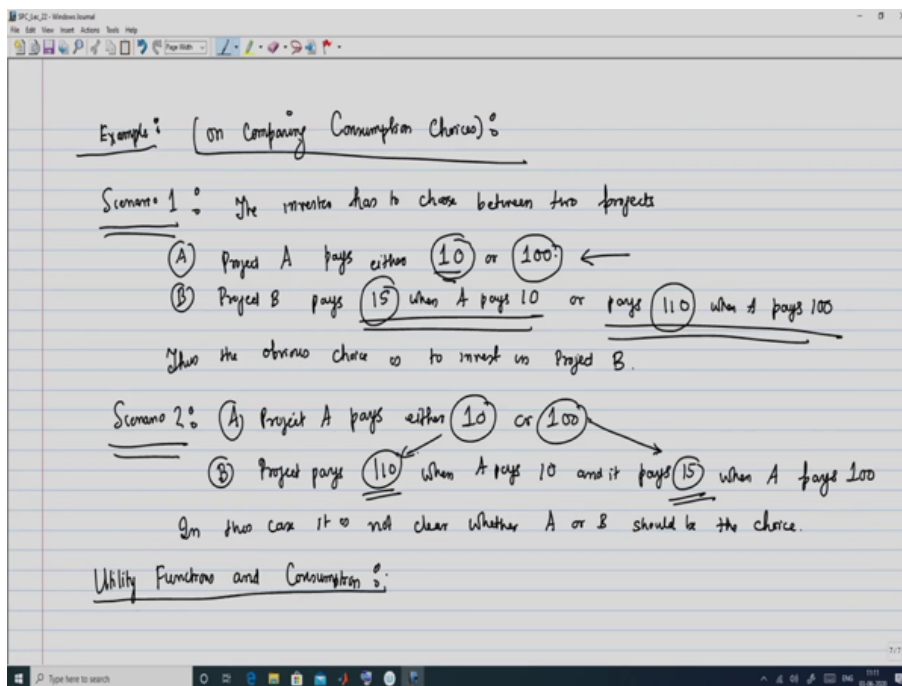 SPC_Lec_22 - Windows Journal
File Edit View Insert Actions Tools Help
Page Width
Example: (on Comparing Consumption Choices):
Scenario 1: The investor has to chose between two projects
(A) Project A pays either 10 or 100. ←
(B) Project B pays 15 when A pays 10 or pays 110 when A pays 100
Thus the obvious choice is to invest in Project B.
Scenario 2: (A) Project A pays either 10 or 100
(B) Project pays 110 when A pays 10 and it pays 15 when A pays 100
In this case it is not clear whether A or B should be the choice.
Utility Functions and Consumption:
7/7
Type here to search
ENG 11:11